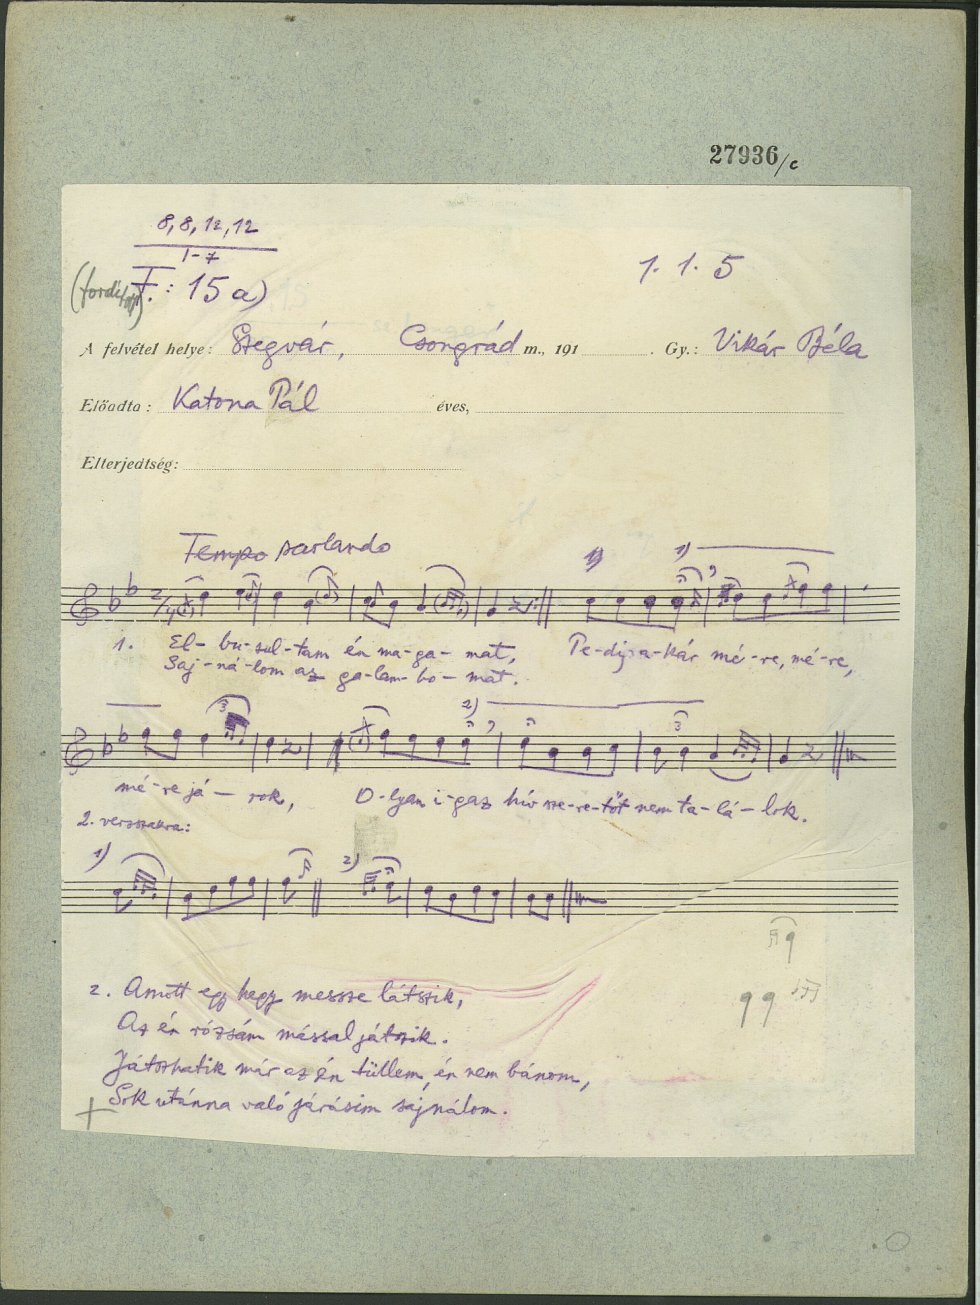 27936/c
8, 8, 12, 12
1-7
1. 1. 5
F.: 15 a)
A felvétel helye: Szegvár, Csongrád m., 191 . Gy.: Vikár Béla
Előadta: Katona Pál éves,
Elterjedtség:
Tempo parlando
1)
2/4
1. El- bu-sul-tam én ma-ga-mat, Pe-dig a-kár mé-re, mé-re,
Saj-ná-lom az ga-lam-bo-mat.
3 2) 3
mé-re já- rok, O-lyan i-gaz hív sze-re-tőt nem ta-lá-lok.
2. versszakra:
1) 2)
2. Amott egy hegy messze látszik,
Az én rózsám mással játszik.
Játszhatik már az én tüllem, én nem bánom,
Sok utánna való járásim sajnálom.